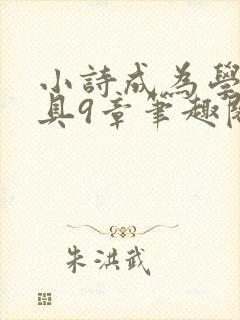 小詩成為學
具9章筆趣閣
朱洪武